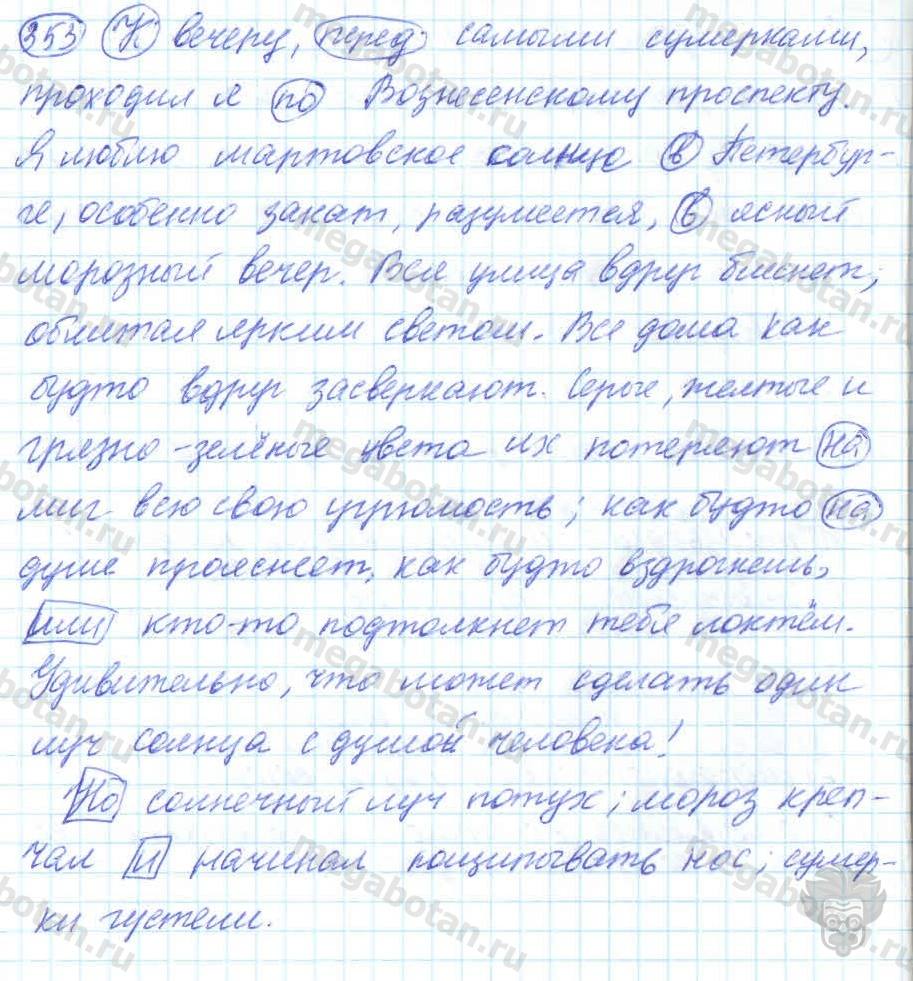 353 К вечеру, перед самыми сумерками,
проходил я по Вознесенскому проспекту.
Я люблю мартовское солнце в Петербур-
ге, особенно закат, разумеется, в ясный
морозный вечер. Вся улица вдруг блеснет,
облитая ярким светом. Все дома как
будто вдруг засверкают. Серые, желтые и
грязно-зелёные цвета их потеряют на
миг всю свою угрюмость; как будто на
душе прояснеет, как будто вздрогнешь,
или кто-то подтолкнет тебя локтём.
Удивительно, что может сделать один
луч солнца с душой человека!
Но солнечный луч потух; мороз креп-
чал и начинал пощипывать нос; сумер-
ки густели.
megabotan.ru